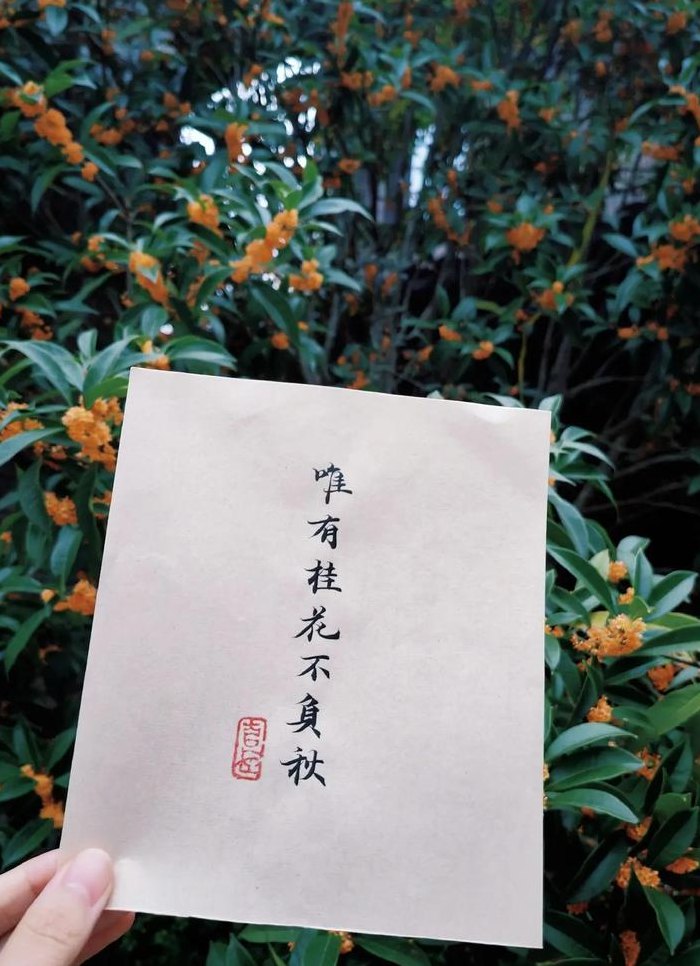 唯有桂花不负秋